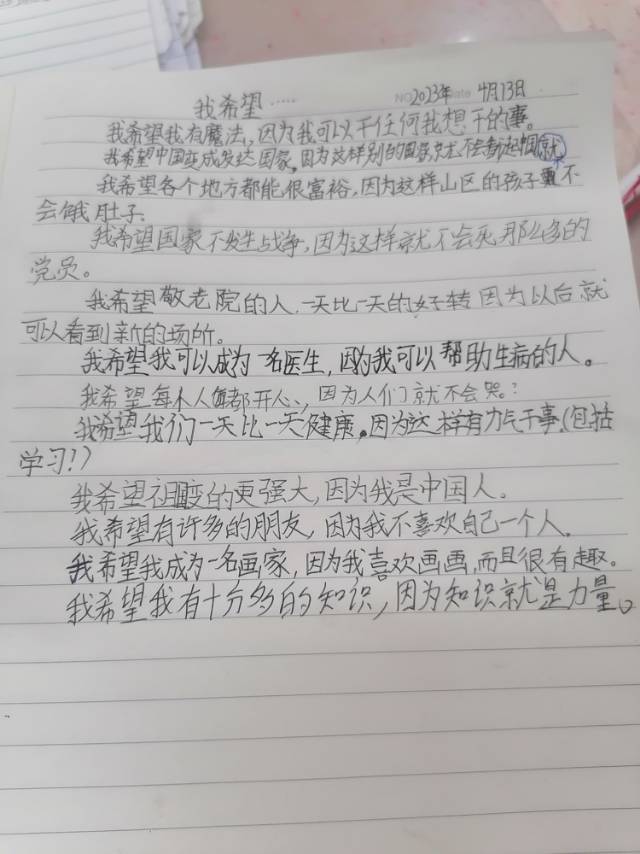 我希望…… NO 2023年 Date 4月13日
我希望我有魔法，因为我可以干任何我想干的事。
我希望中国变成发达国家，因为这样别的国家就不会看不起咱
我希望各个地方都能很富裕，因为这样山区的孩子就不
会饿肚子。
我希望国家不发生战争，因为这样就不会死那么多的
党员。
我希望敬老院的人，一天比一天的好转因为以后就
可以看到新的场所。
我希望我可以成为一名医生，因为我可以帮助生病的人。
我希望每个人都开心、，因为人们就不会哭。
我希望我们一天比一天健康。因为这样有力气干事，（包括
学习！）
我希望祖国变的更强大，因为我是中国人。
我希望有许多的朋友，因为我不喜欢自己一个人。
我希望我成为一名画家，因为我喜欢画画，而且很有趣。
我希望我有十分多的知识，因为知识就是力量。